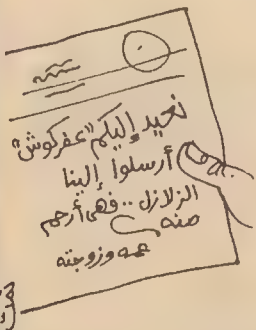 نعيد إليكم "عفركوش"
أرسلوا إلينا
الزلازل .. فهى أرحم
منه
عمه وزوجته